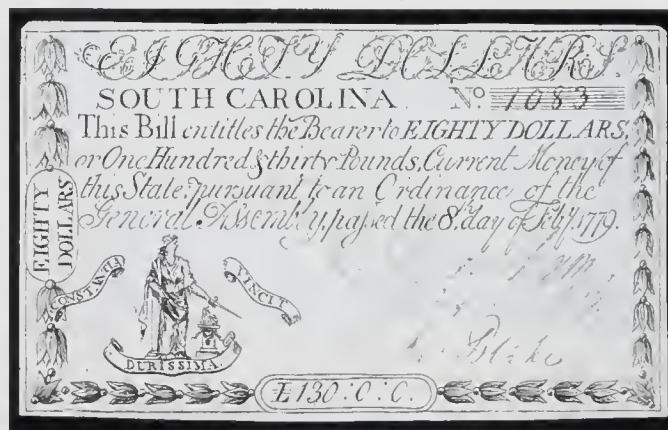 EIGHTY DOLLARS.
SOUTH CAROLINA. No. 1083
This Bill entitles the Bearer to EIGHTY DOLLARS,
or One Hundred & thirty Pounds, Current Money of
this State, pursuant to an Ordinance of the
General Assembly, passed the 8th. day of Feby. 1779.
EIGHTY
DOLLARS
CONSTANTIA
VINCIT
DURISSIMA.
Blake
£130:0:0.